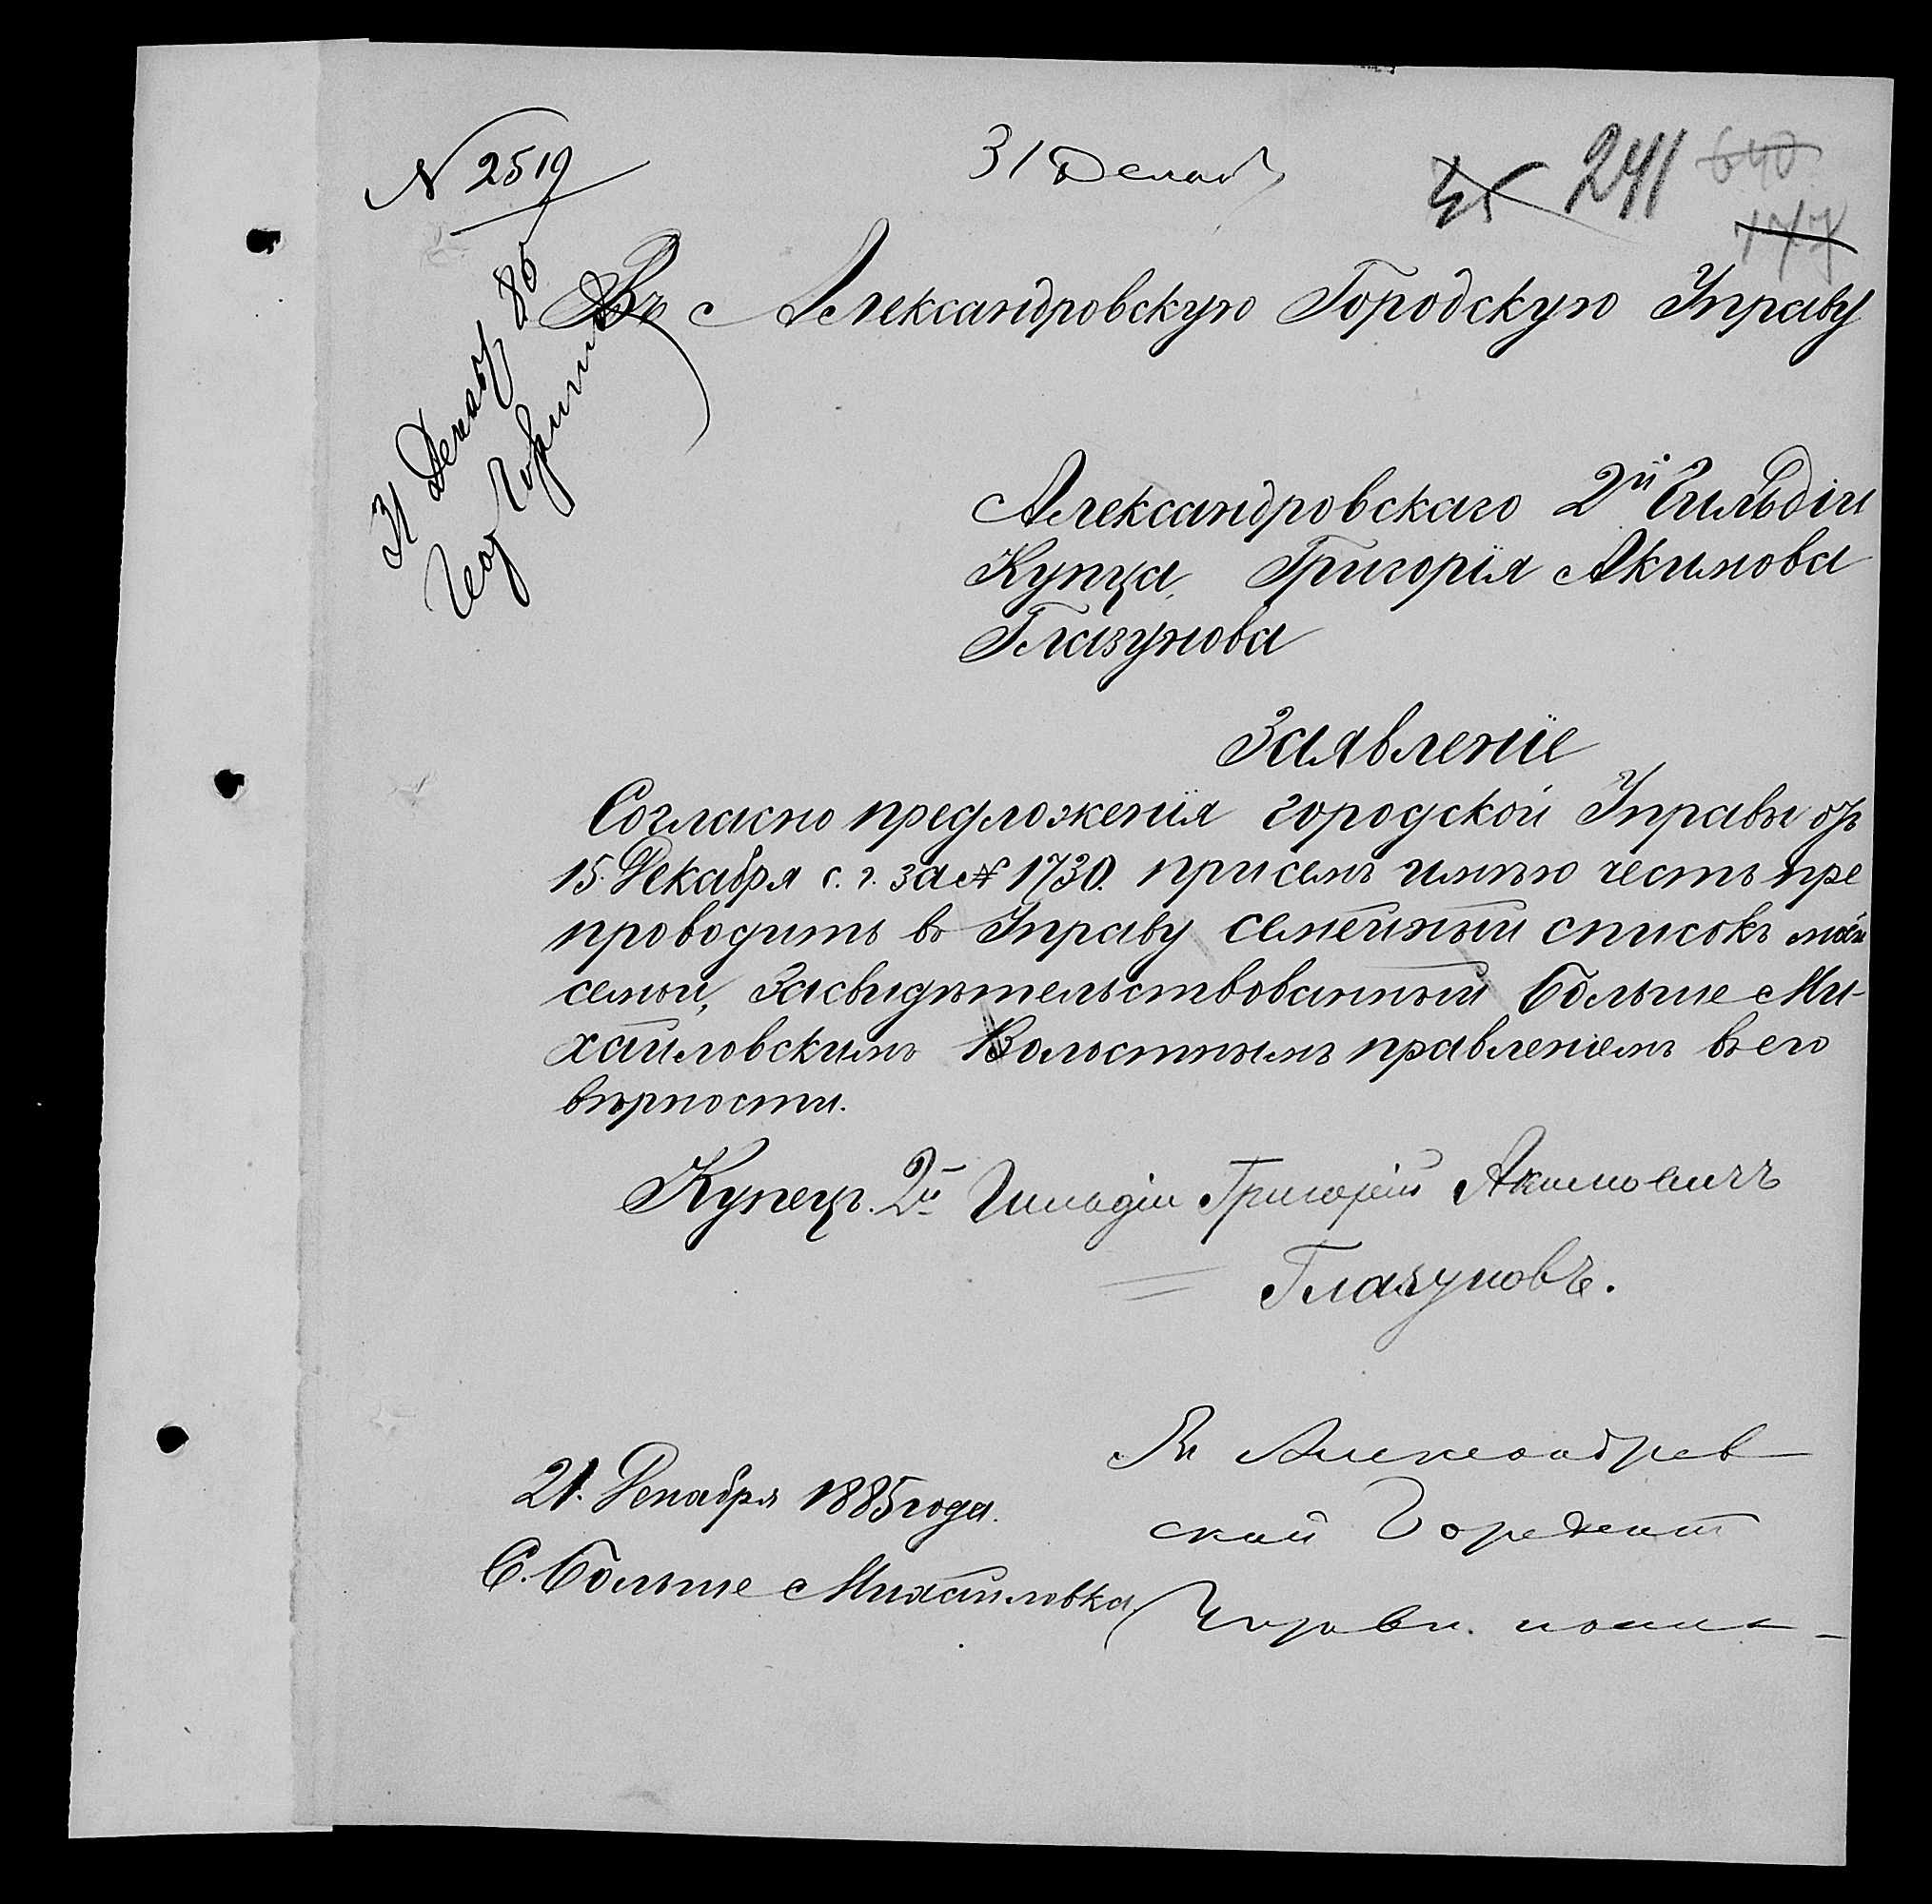 N 2519
31 Декаб
241
640
177
31 Декабр 85
Въ Александровскую Городскую Управу
Александровскаго 2й Гильдіи
Купца, Григорія Акимова
Глазунова
Заявленіе
Согласно предложенія городской Управы отъ
15. Декабря с. г. за № 1730. при семъ имѣю честь пре
проводить въ Управу семейный списокъ моей
семьи, Засвидѣтельствованный Больше Ми-
хайловскимъ Волостнымъ правленіемъ въ его
вѣрности.
Купецъ. 2й Гильдіи Григорій Акимовичъ
Глазуновъ.
21. Декабря 1885 года.
С. Больше Михайловка